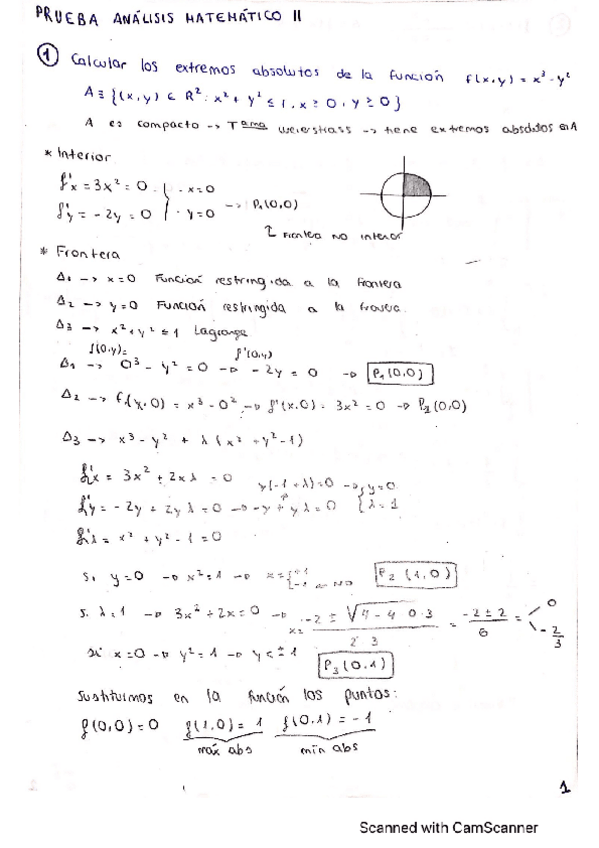 PRUEBA ANÁLISIS MATEMÁTICO II
① Calcular los extremos absolutos de la función f(x,y) = x³ - y²
A ≡ {(x,y) ∈ R² : x² + y² ≤ 1, x ≥ 0, y ≥ 0}
A es compacto -> Tema Weierstrass -> tiene extremos absolutos en A
* Interior
f'x = 3x² = 0 · x=0
f'y = -2y = 0 · y=0 -> P₁(0,0)
↳ Frontera no interior
* Frontera
Δ₁ -> x=0 Función restringida a la frontera
Δ₂ -> y=0 Función restringida a la frontera
Δ₃ -> x²+y² = 1 Lagrange
f(0,y)= f'(0,y)
Δ₁ -> 0³ - y² = 0 -> -2y = 0 -> P₁(0,0)
Δ₂ -> f(x,0) = x³ - 0² -> f'(x,0) = 3x² = 0 -> P₁(0,0)
Δ₃ -> x³ - y² + λ(x² + y² - 1)
f'x = 3x² + 2xλ = 0 y(-1+λ)=0 -> y=0
f'y = -2y + 2yλ = 0 -> -y + yλ = 0 λ=1
f'λ = x² + y² - 1 = 0
Si y=0 -> x²=1 -> x = { +1 -1 -> NO P₂(1,0)
Si λ=1 -> 3x² + 2x = 0 -> x = -2 ± √4 - 4·0·3 / 2·3 = -2 ± 2 / 6 = 0 -2/3
si x=0 -> y²=1 -> y = ±1 P₃(0,1)
Sustituimos en la función los puntos:
f(0,0)=0 f(1,0)=1 f(0,1)=-1
máx abs mín abs
1
Scanned with CamScanner